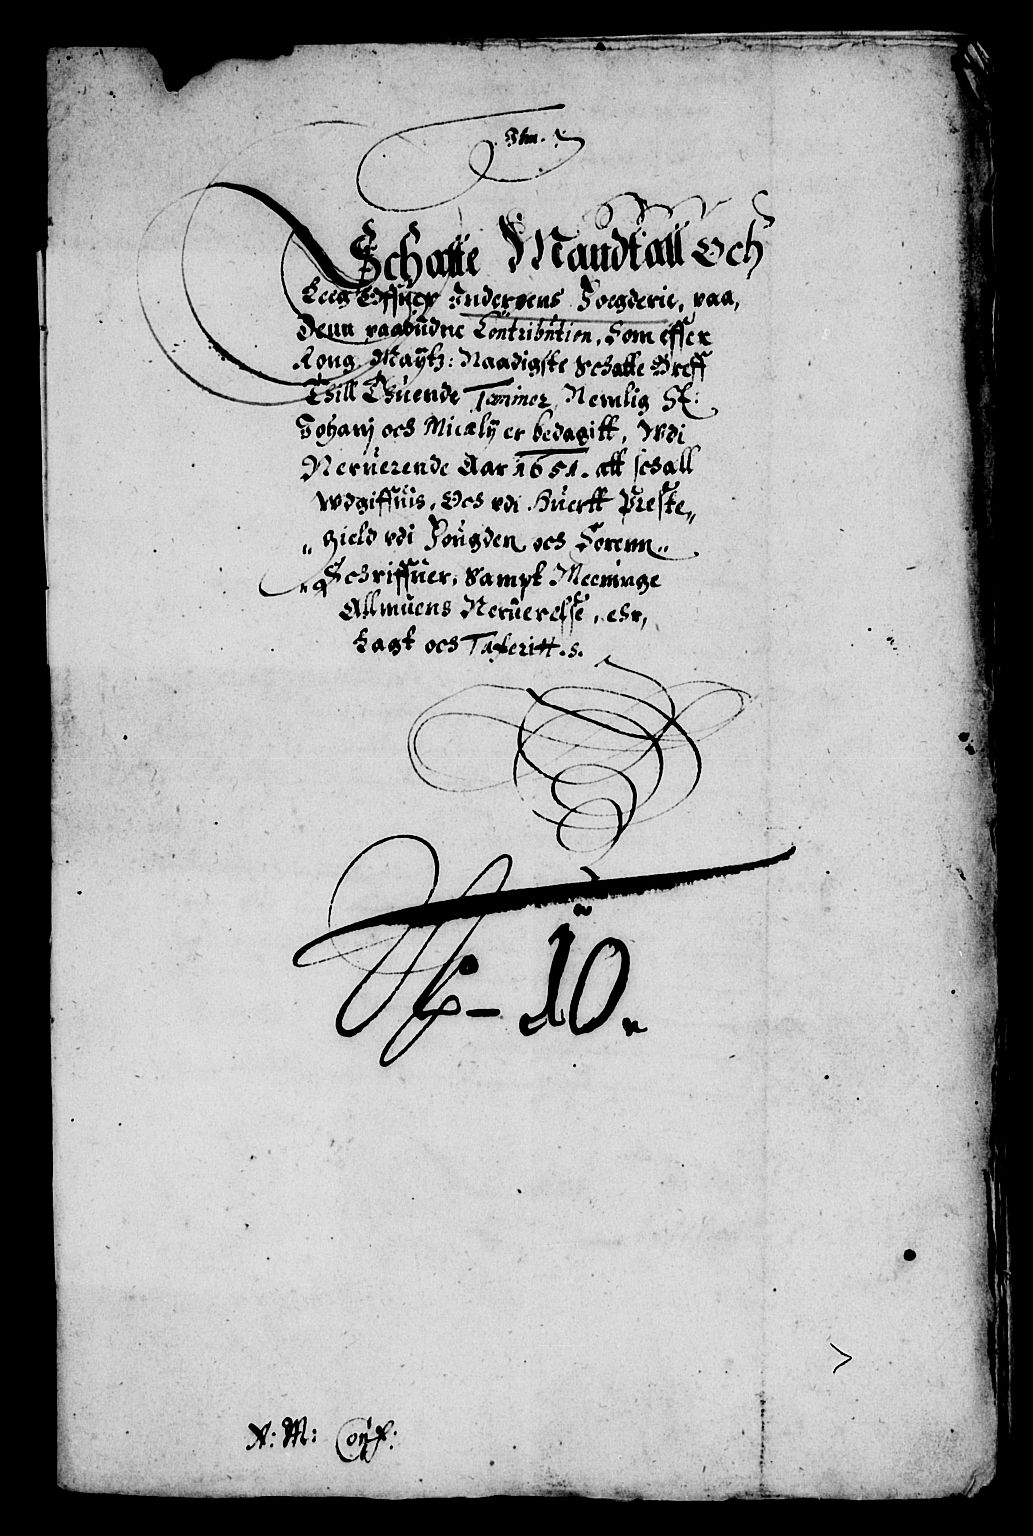 Schatte Mandtall Och
Leeg Offuer Inderøens Foegderie, paa,
Denn paabudne Contribution, Som effter
Kong. Maytz: Naadigste Schatte Breff
Thill Thuende Terminer, Nemlig St:
Johanj och Micælij er bedagitt, Udi
Neruerende Aar 1651. att schall
Udgiffuis, Och udi Huertt Preste„
„gield udi Fougden och Sorenn„
„Schriffuer, Sampt Meenige
Allmuens Neruerelse, ehr,
Lagt och Taxeritt.s.
N– 10.
N: M: